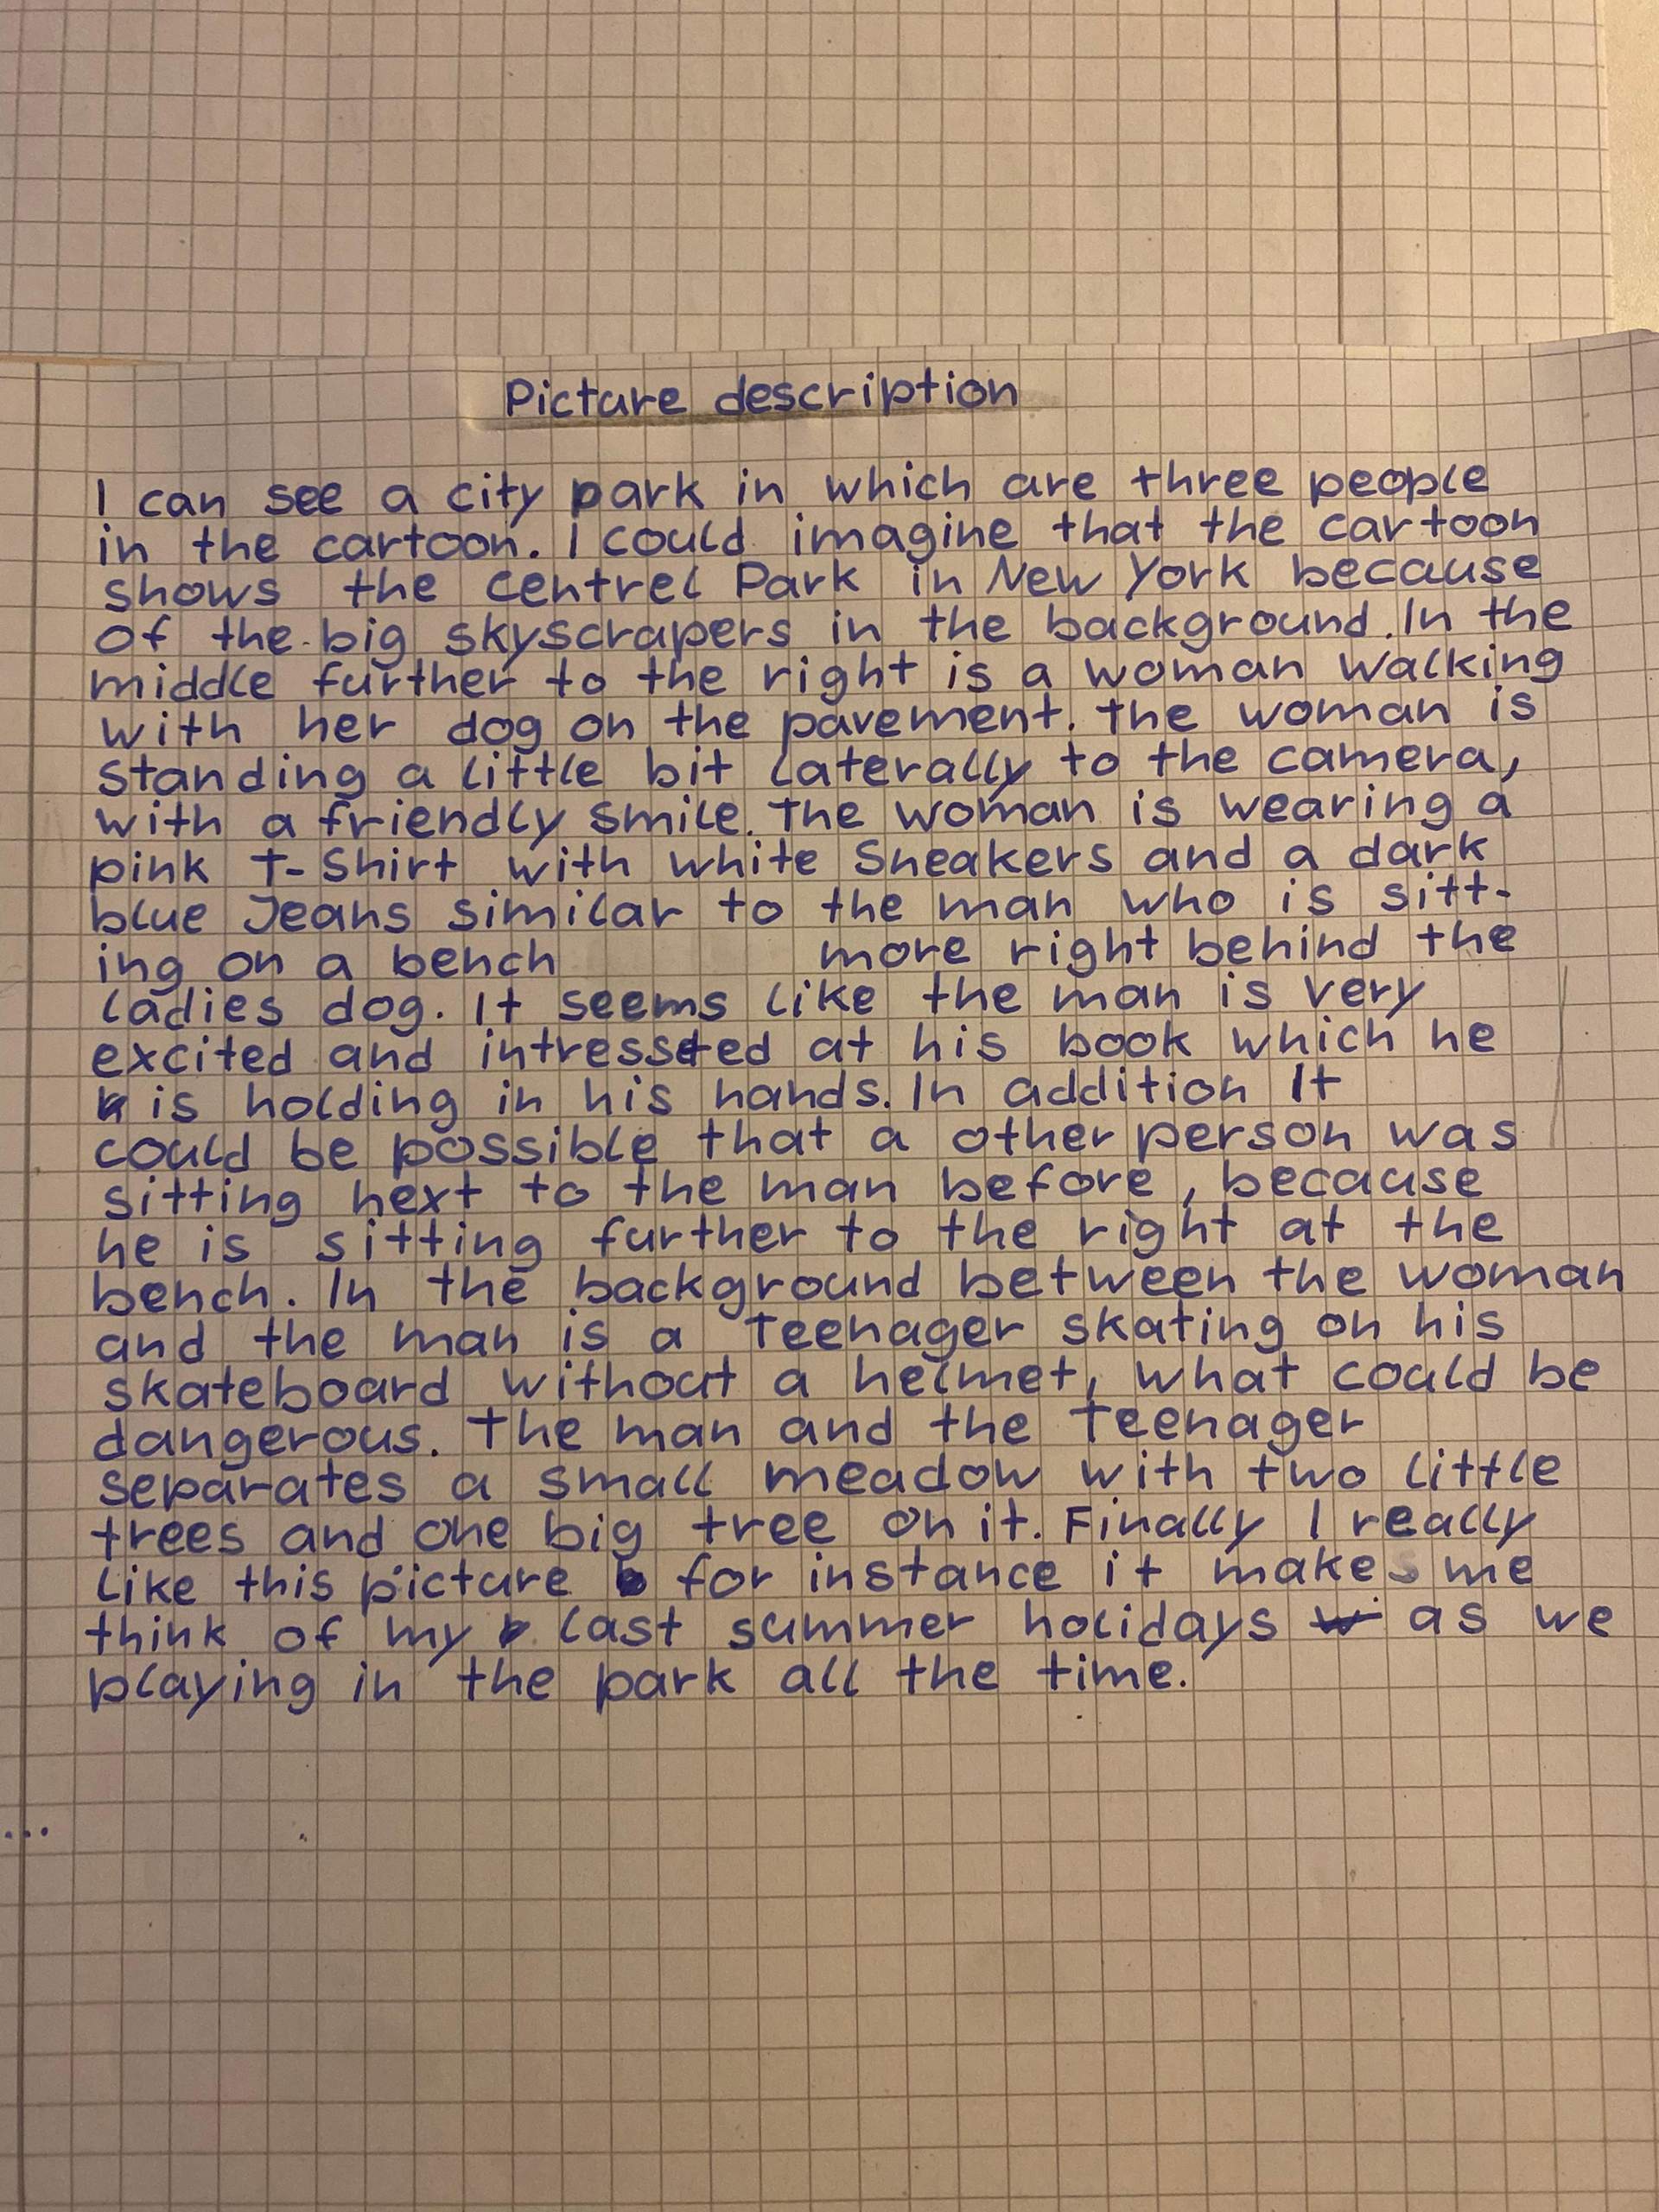 Picture description
I can see a city park in which are three people
in the cartoon. I could imagine that the cartoon
shows the Centrel Park in New York because
of the big skyscrapers in the background. In the
middle further to the right is a woman walking
with her dog on the pavement. The woman is
standing a little bit laterally to the camera,
with a friendly smile. The woman is wearing a
pink T-Shirt with white Sneakers and a dark
blue Jeans similar to the man who is sitt-
ing on a bench more right behind the
ladies dog. It seems like the man is very
excited and intressted at his book which he
is holding in his hands. In addition It
could be possible that a other person was
sitting next to the man before, because
he is sitting further to the right at the
bench. In the background between the woman
and the man is a Teenager skating on his
skateboard without a helmet, what could be
dangerous. The man and the Teenager
separates a small meadow with two little
trees and one big tree on it. Finally I really
like this picture for instance it makes me
think of my last summer holidays as we
playing in the park all the time.
...